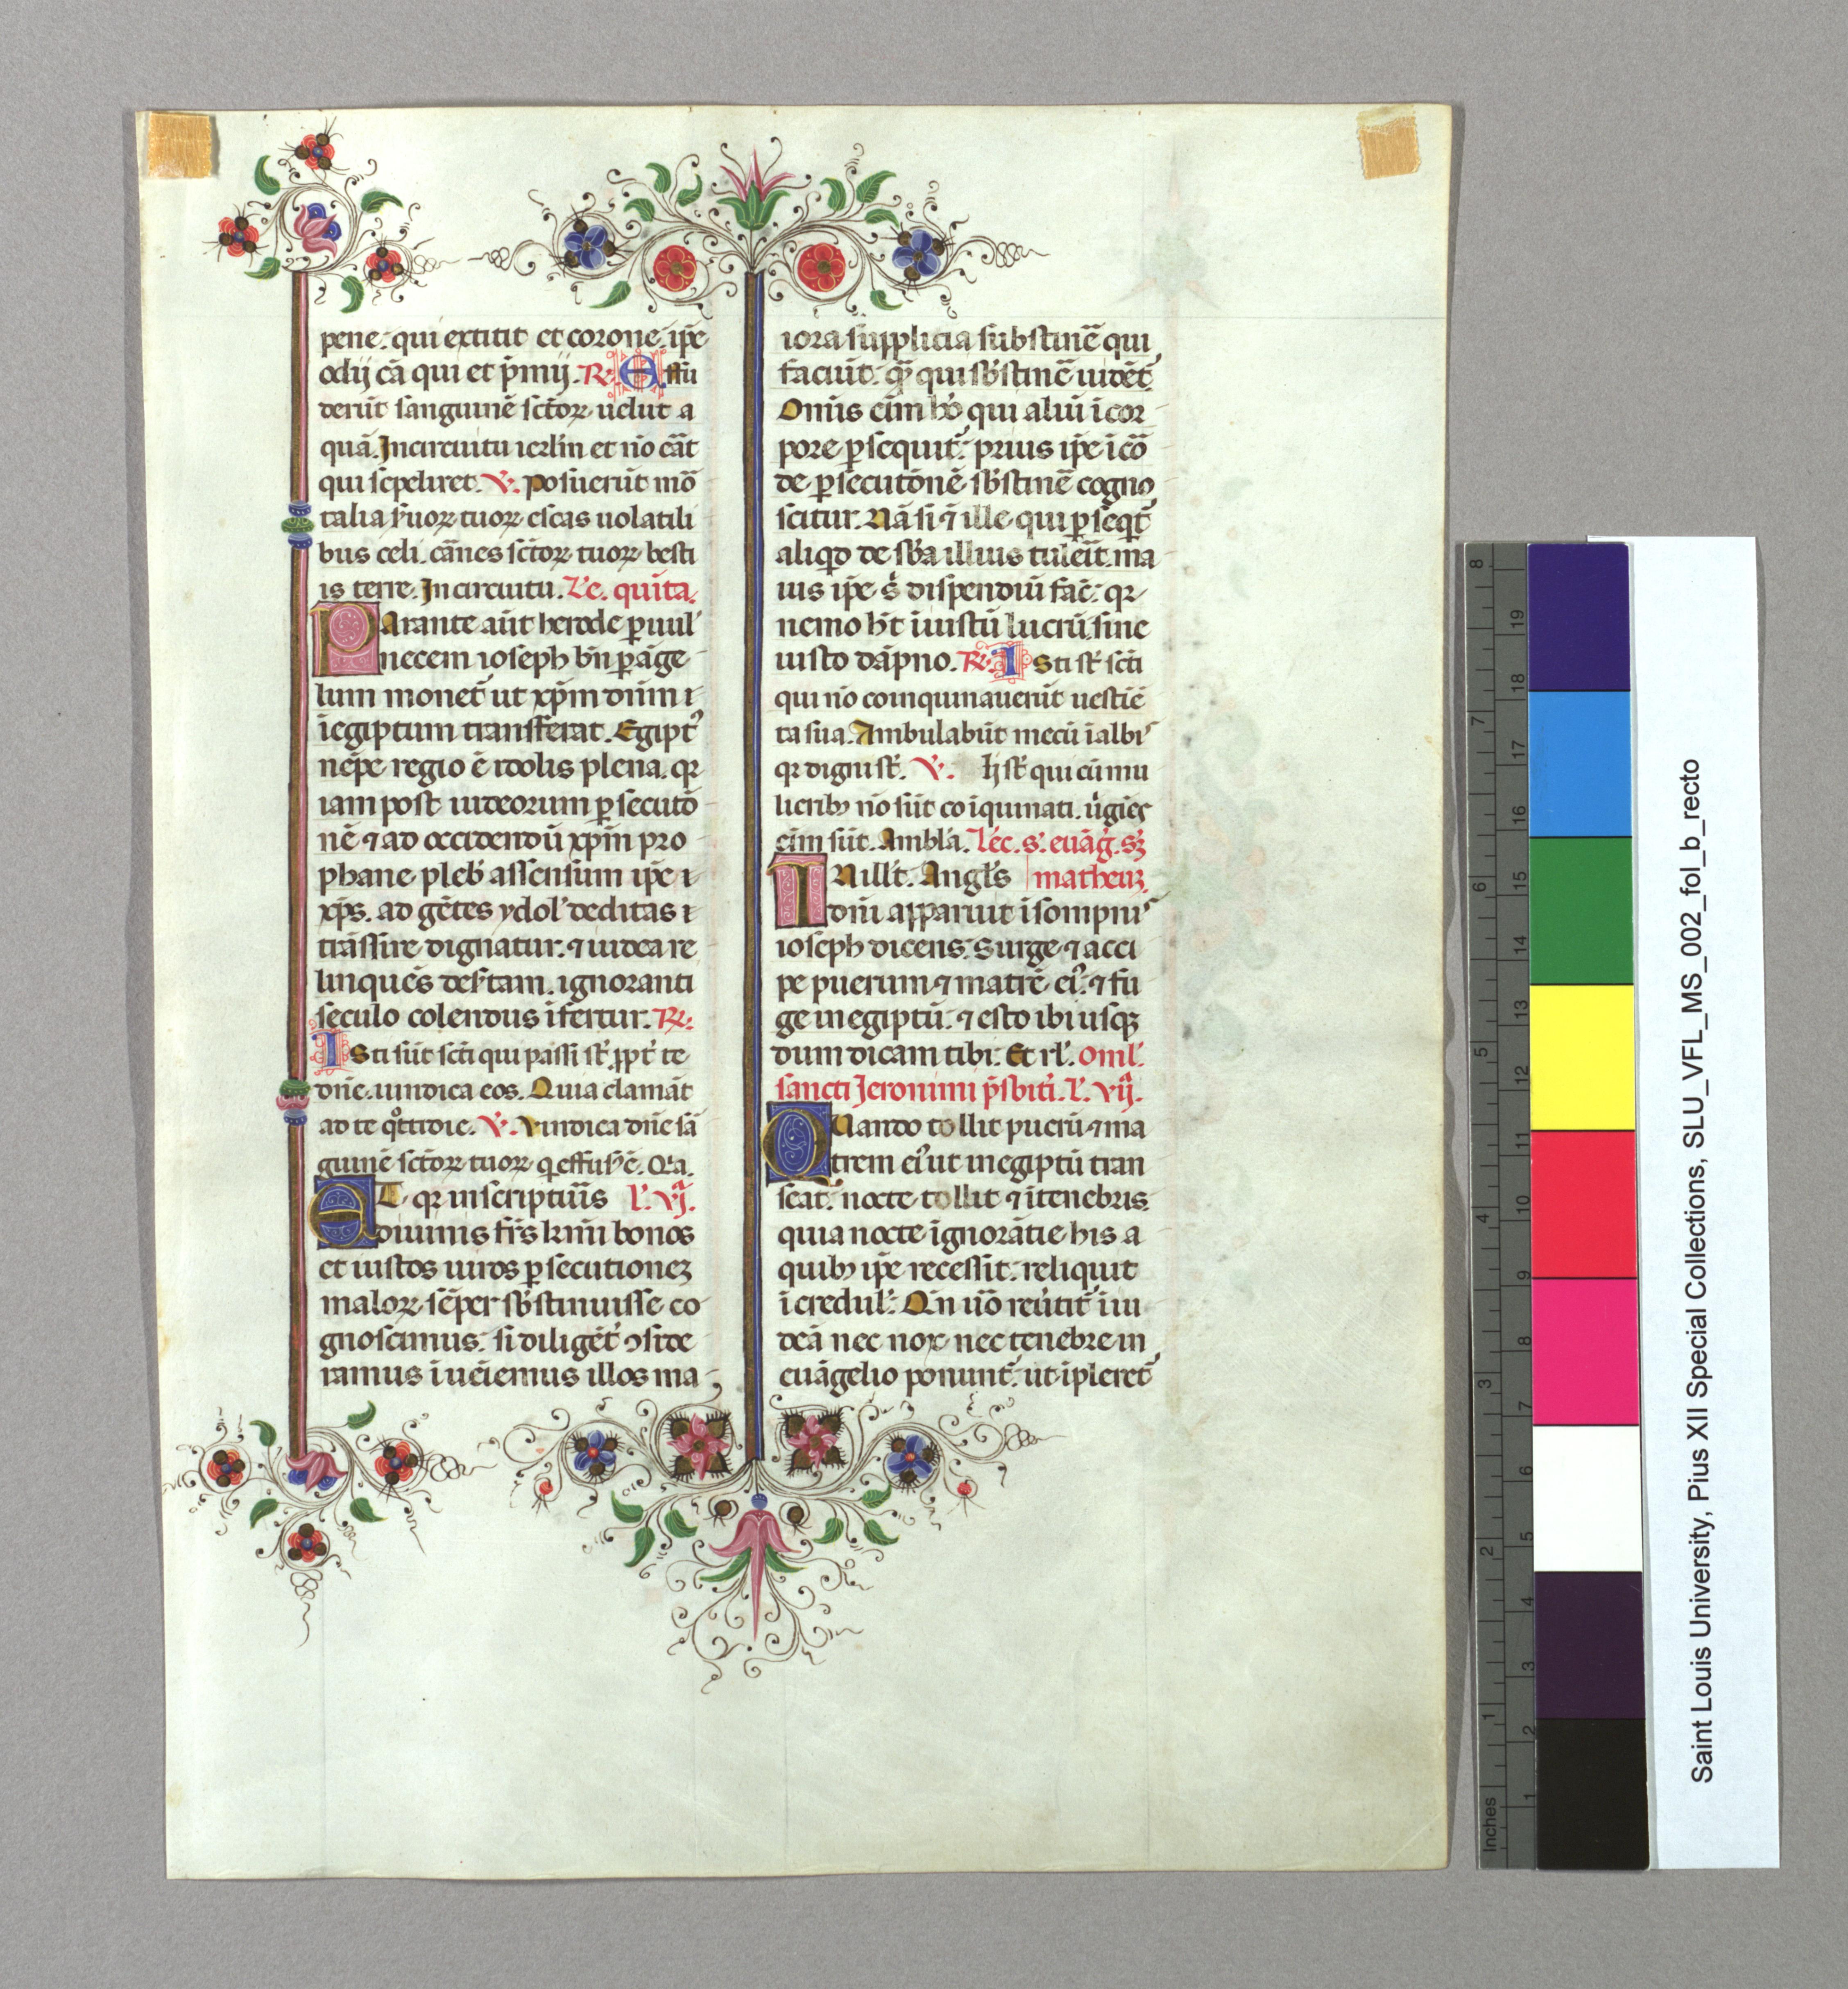 pene. qui extitit et corone. ip̄e
odij cā qui et p̄mij. R. Effu
derūt sanguinē sc̄toꝝ uelut a
quā. In circuitu ierl̄m et nō ēāt
qui sepeliret. V. Posuerūt mō
talia s̓uoꝝ tuoꝝ escas uolatili
bus celi. cānes sc̄toꝝ tuoꝝ besti
is terre. In circuitu. Lc̄. quīta.
Parante aūt herode ꝑuul̓
necem ioseph bn̄ ꝑ āge
lum monet̄ ut xp̄m dūm ı
iegiptum transferat. Egipt᷒
nēpe regio ē idolis plena. qꝛ
iam post iudeorum ꝑsecutō
nē ⁊ ad occidendū xp̄m pro
phane pleb̓ assensum ip̄e ı
xp̄s. ad gētes ydol̓ deditas ı
trāssire dignatur. ⁊ iudea re
linquēs des̓tam. ignoranti
seculo colendus īfertur. R.
Isti sūt sc̄ti qui passi sūt ꝓpt̄ te
dn̄e. uindica eos. Quia clamāt
ad te qͦtidie. V. Vindica dn̄e sā
guinē sc̄toꝝ tuoꝝ q̄ effus᷒ ē. Qa.
ET qꝛ inscriptuīs l̓. vj.
diuinis fr̄s kmī bonos
et iustos uiros ꝑsecutioneꝫ
maloꝝ sēper sb̓stinuisse co
gnoscimus. si diligēt̓ ꝯside
ramus īueiemus illos ma
iora supplicia substinē qui
faciūt. qꝫ qui sb̓stinē uidēt̄.
Omīs eīm hō qui aliū ī cor
pore ꝑsequit̄. prius ip̄e ī cō
de ꝑsecutōnē sb̓stinē cogno
scitur. Nā si ⁊ ille qui ꝑseqt̄
aliqͦd de sb̓a illius tuleīt. ma
ius ip̄e s̓ dispendiū fac̄. qꝛ
nemo hꝫt īiustū lucrū. sine
iusto dāpno. R. Isti st̄ sc̄ti
qui nō coinquinauerūt uestīē
ta sua. Ambulabūt mecū ī albi᷒
qꝛ digni st̄. V. Hi st̄ qui cū mu
lieribꝫ nō sūt coīquinati. ûgiēs
eīm sūt. Ambl̄a. Lec̄. s̓. euāg̓. sꝫ
In ill̓t. Angl̓s matheuꝫ.
dn̄i apparuit ī sompni᷒
ioseph dicens. Surge ⁊ acci
pe puerum ⁊ matrē ei᷒. ⁊ fu
ge in egiptū. ⁊ esto ibi usqꝫ
dum dicam tibi. Et rl̓. Oml̓.
sancti Jeronimi p̄sbiti. l̓. vij.
Quando tollit puerū ⁊ ma
trem ei᷒ ut in egiptū tran
seat. nocte tollit ⁊ ī tenebris.
quia nocte ignorātie his a
quibꝫ ip̄e recessit. reliquit
ī credul̓. Qn̄ uō reūtit̄ ī iu
deā nec nox nec tenebre in
euāgelio ponunt̄. ut īpleret̄
Saint Louis University, Pius XII Special Collections, SLU_VFL_MS_002_fol_b_recto
Inches
1 2 3 4 5 6 7 8
1 2 3 4 5 6 7 8 9 10 11 12 13 14 15 16 17 18 19